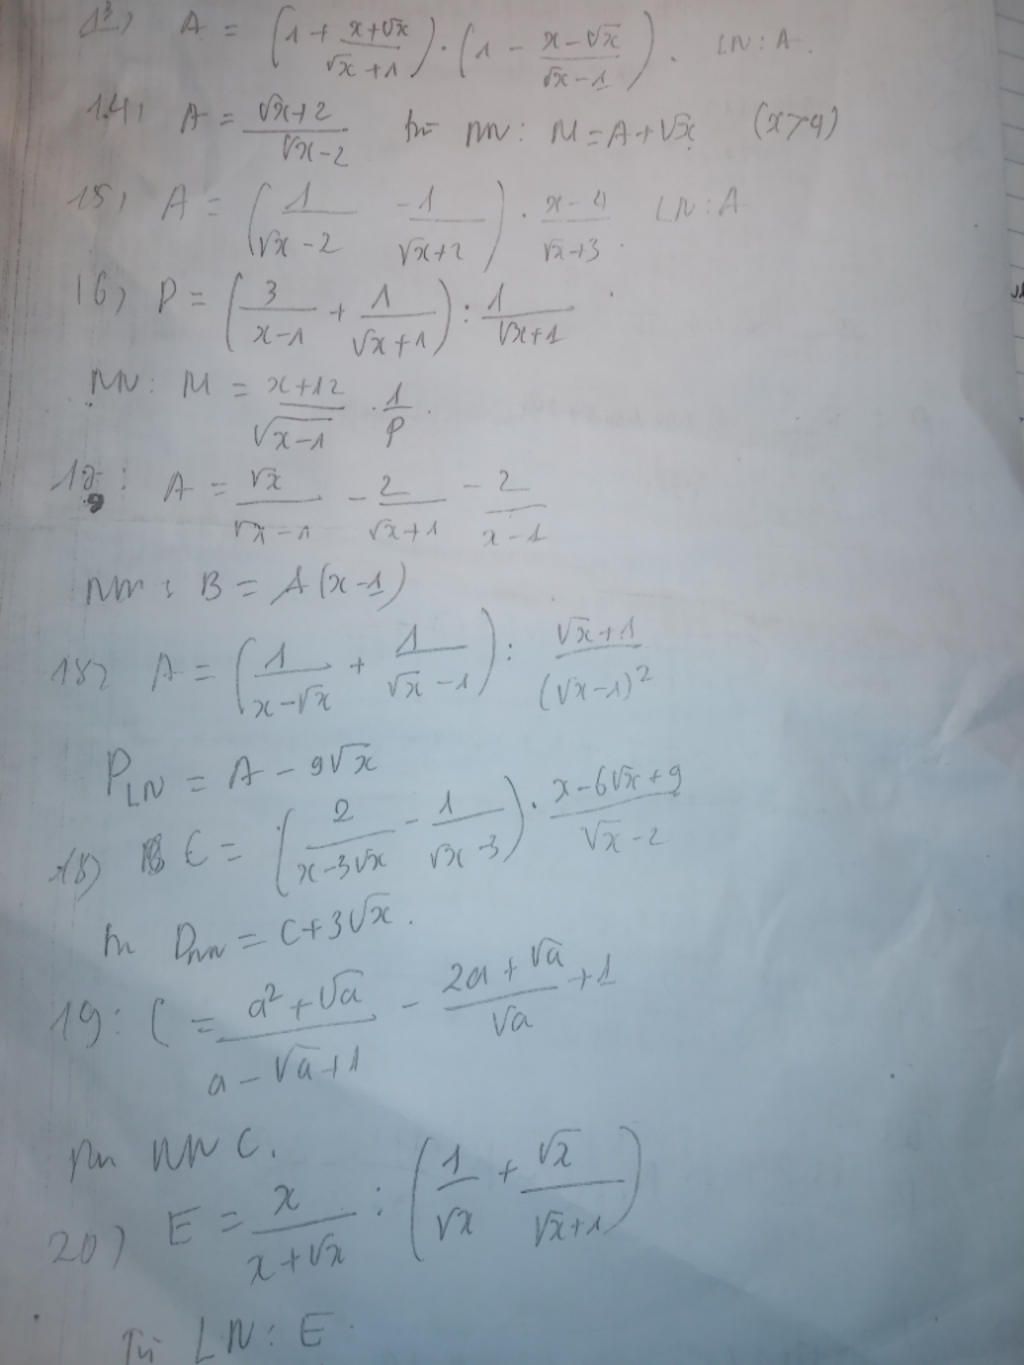 13) A = (1 + (x+√x)/(√x+1)) · (1 − (x−√x)/(√x−1)). LN: A.
14) A = (√x+2)/(√x−2) tìm NN: M = A+√x (x>4)
15) A = (1/(√x−2) −1/(√x+2)) · (x−4)/(√x+3). LN: A
16) P = (3/(x−1) + 1/(√x+1)) : 1/(√x+1)
NN: M = (x+12)/√(x−1) · 1/P.
A = √x/(√x−1) − 2/(√x+1) − 2/(x−1)
NN: B = A(x−1)
18) A = (1/(x−√x) + 1/(√x−1)) : (√x+1)/(√x−1)²
P_LN = A − 9√x
18) C = (2/(x−3√x) − 1/(√x−3)) · (x−6√x+9)/(√x−2)
D_NN = C+3√x.
19: C = (a²+√a)/(a−√a+1) − (2a+√a)/√a + 1
NN C.
20) E = x/(x+√x) : (1/√x + √x/(√x+1))
Tìm LN: E.